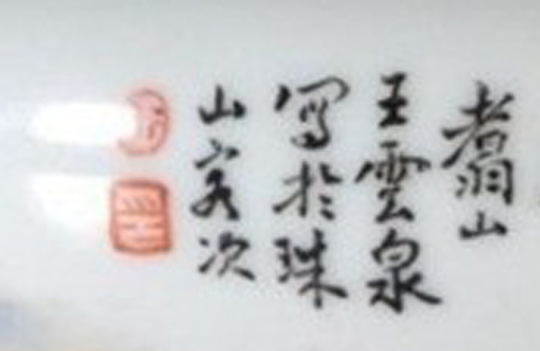 翥山
王雲泉
寫於珠
山客次